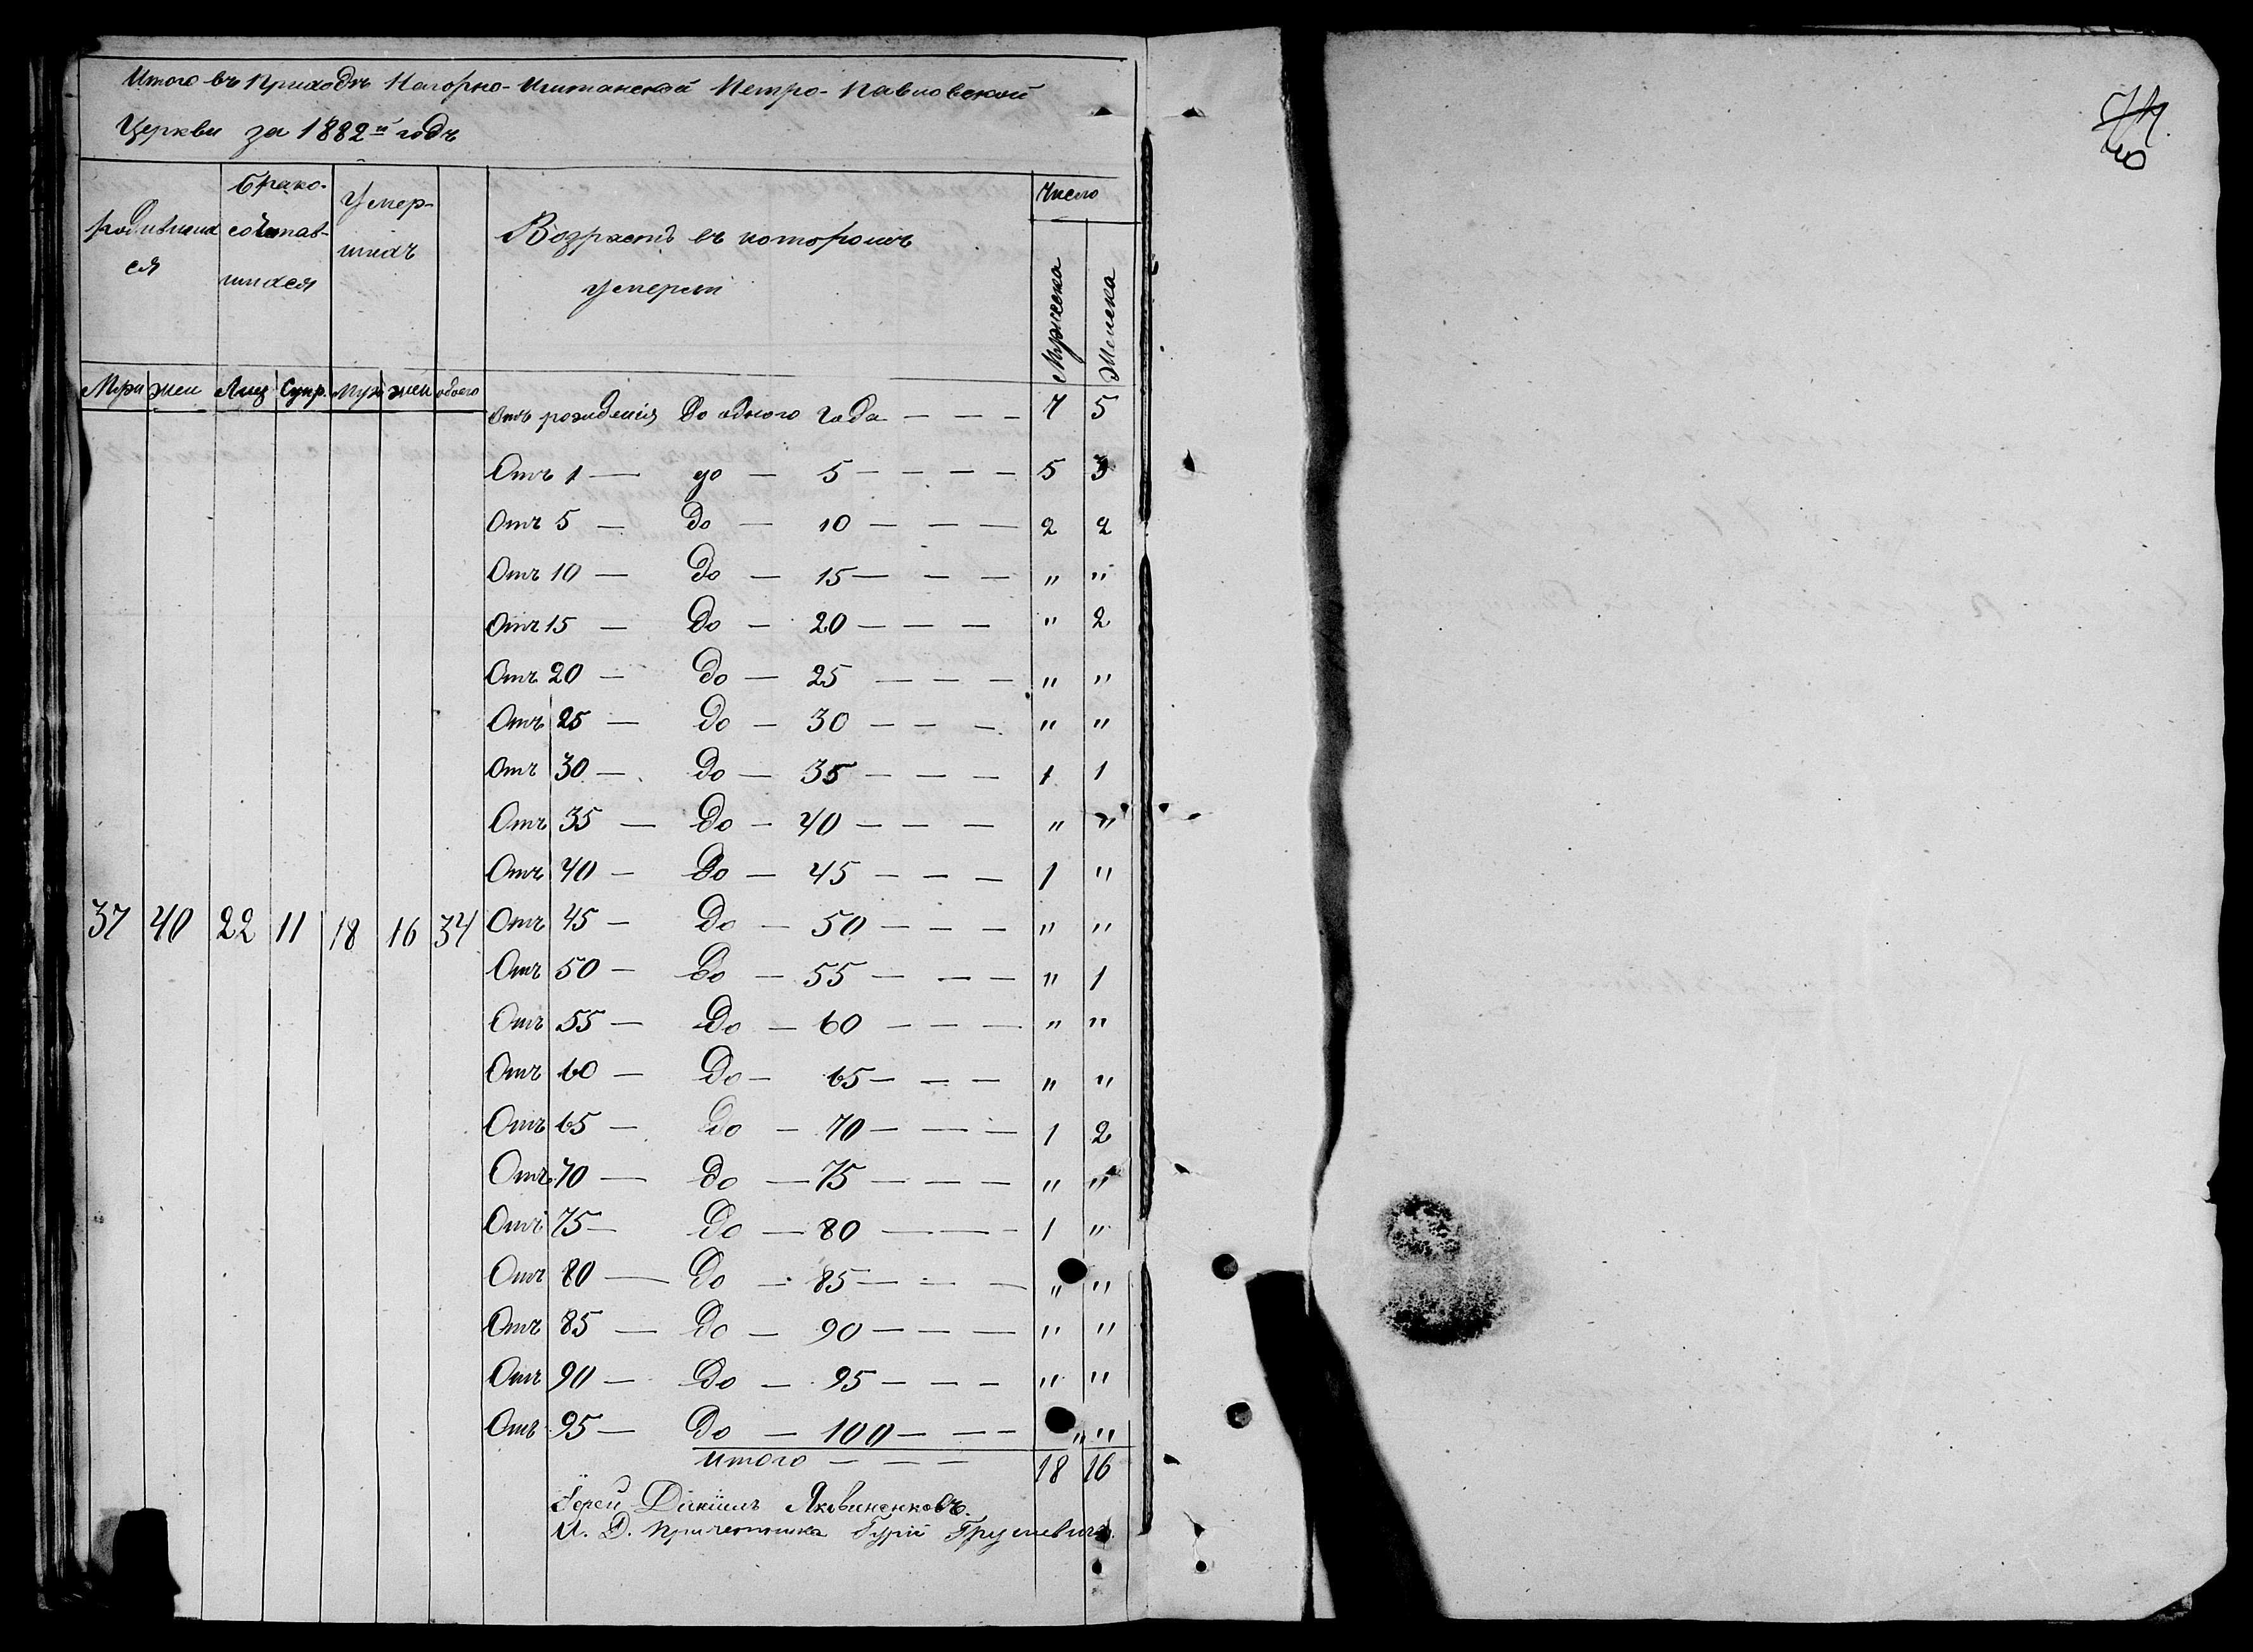 Итого въ Приходѣ Нагорно-Иштанской Петро-Павловской
Церкви за 1882й годъ
Родившихся
Брако-
сочетав-
шихся
Умер-
шихъ
Возрастъ въ которомъ
умерли
Число
Мужеска
Женска
Муж жен Лиц Супр. муж жен обоего
Отъ рожденія До одного Года — — — 7 5
Отъ 1 — до — 5 — — — — 5 3
Отъ 5 — До — 10 — — — 2 2
Отъ 10 — До — 15 — — — " "
Отъ 15 — До — 20 — — — " 2
Отъ 20 — До — 25 — — — " "
Отъ 25 — До — 30 — — — " "
Отъ 30 — До — 35 — — — 1 1
Отъ 35 — До — 40 — — — " "
Отъ 40 — До — 45 — — — 1 "
37 40 22 11 18 16 34 Отъ 45 — До — 50 — — — " "
Отъ 50 — До — 55 — — — " 1
Отъ 55 — До — 60 — — — " "
Отъ 60 — До — 65 — — — " "
Отъ 65 — До — 70 — — — 1 2
Отъ 70 — До — 75 — — — " "
Отъ 75 — До — 80 — — — 1 "
Отъ 80 — До — 85 — — — " "
Отъ 85 — До — 90 — — — " "
Отъ 90 — До — 95 — — — " "
Отъ 95 — До — 100 — — — " "
Итого — — — 18 16
Іерей Даніилъ
И. Д. Причетника Гурій
40